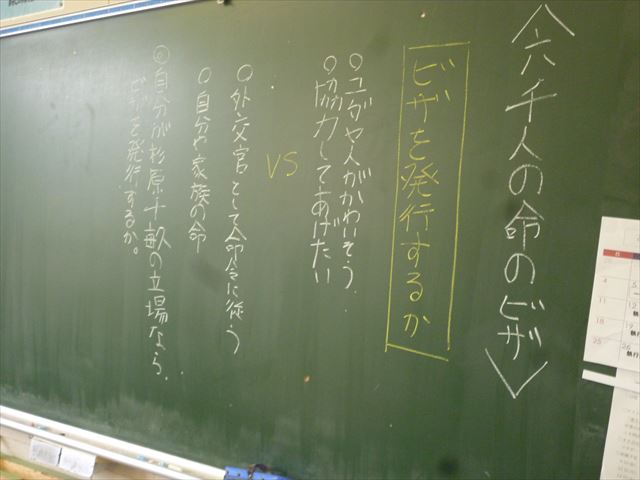 〈六千人の命のビザ〉
ビザを発行するか
○ユダヤ人がかわいそう.
○協力してあげたい
VS
○外交官として命令に従う
○自分や家族の命
◎自分が杉原千畝の立場なら、
ビザを発行するか。